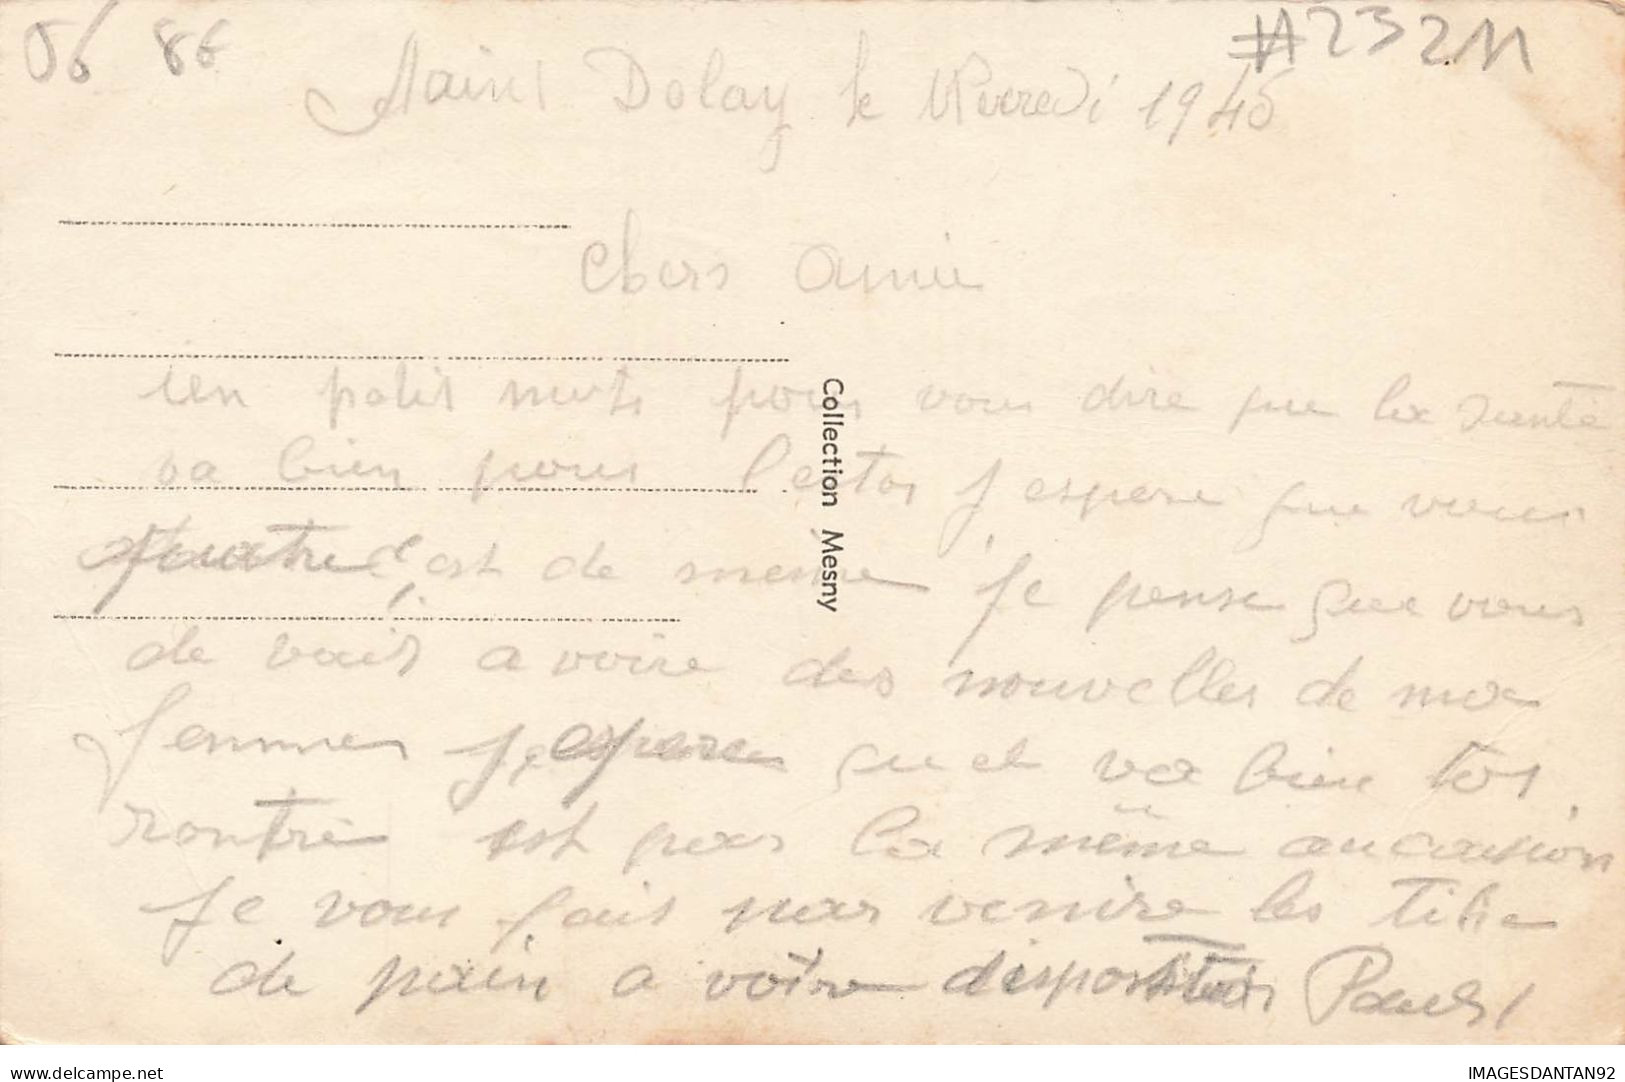 06 86
#A23211
Saint Dolay le 1945
Chers amie
un petit mots pour vous dire que la santé
va bien pour l'estos j espere que vous
c est de meme je pense que vous
de vait a voire des nouvelles de ma
femme j,espere qu el va bien tos
rontre est par la même aucassion
Je vous fait par venire les tike
de pain a votre disposition Paul
Collection Mesny
delcampe.net
IMAGESDANTAN92